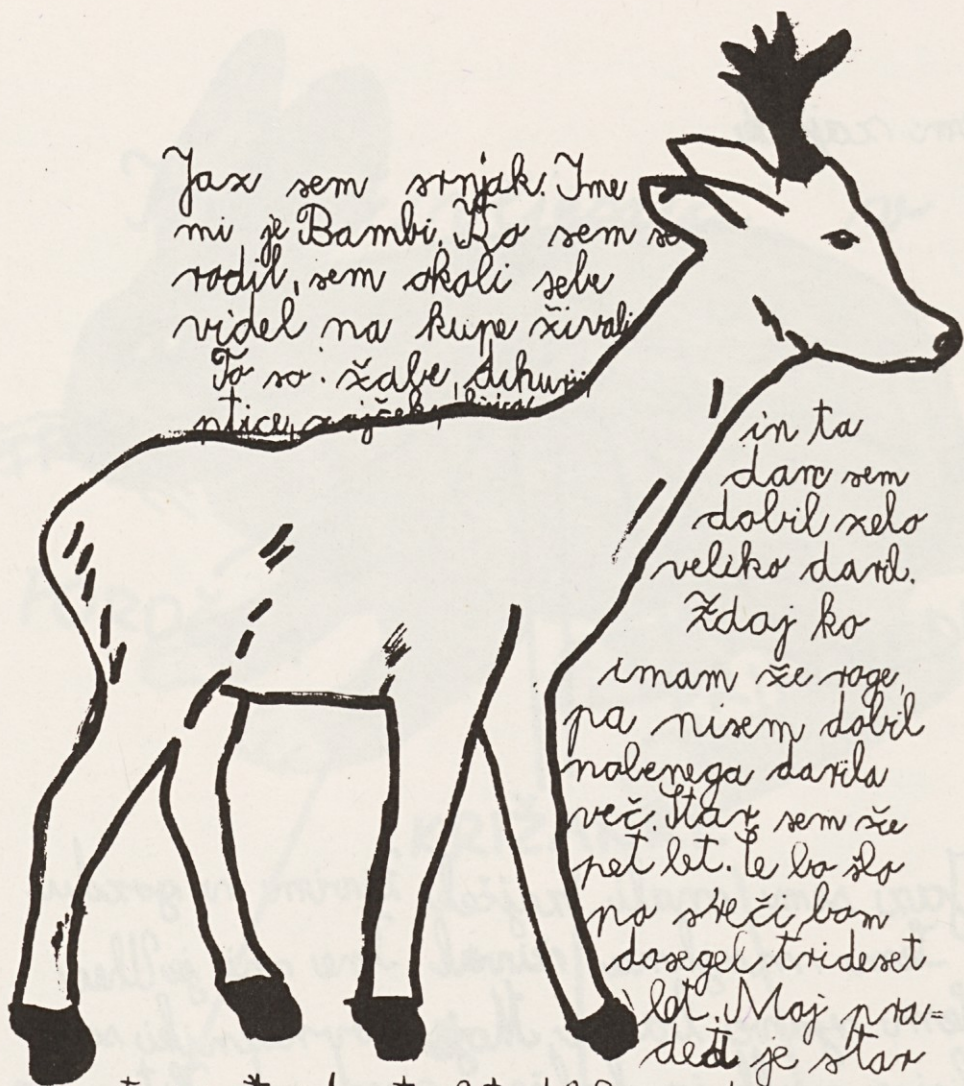 Jaz sem srnjak. Ime
mi je Bambi. Ko sem se
rodil, sem okoli sebe
videl na kupe živali
To so: žabe, dihurji,
ptice, zajčeki,
in ta
dan sem
dobil zelo
veliko daril.
Zdaj ko
imam že roge,
pa nisem dobil
nobenega darila
več. Star sem že
pet let. Če bo šlo
po sreči, bom
dosegel trideset
let. Moj pra=
ded je star